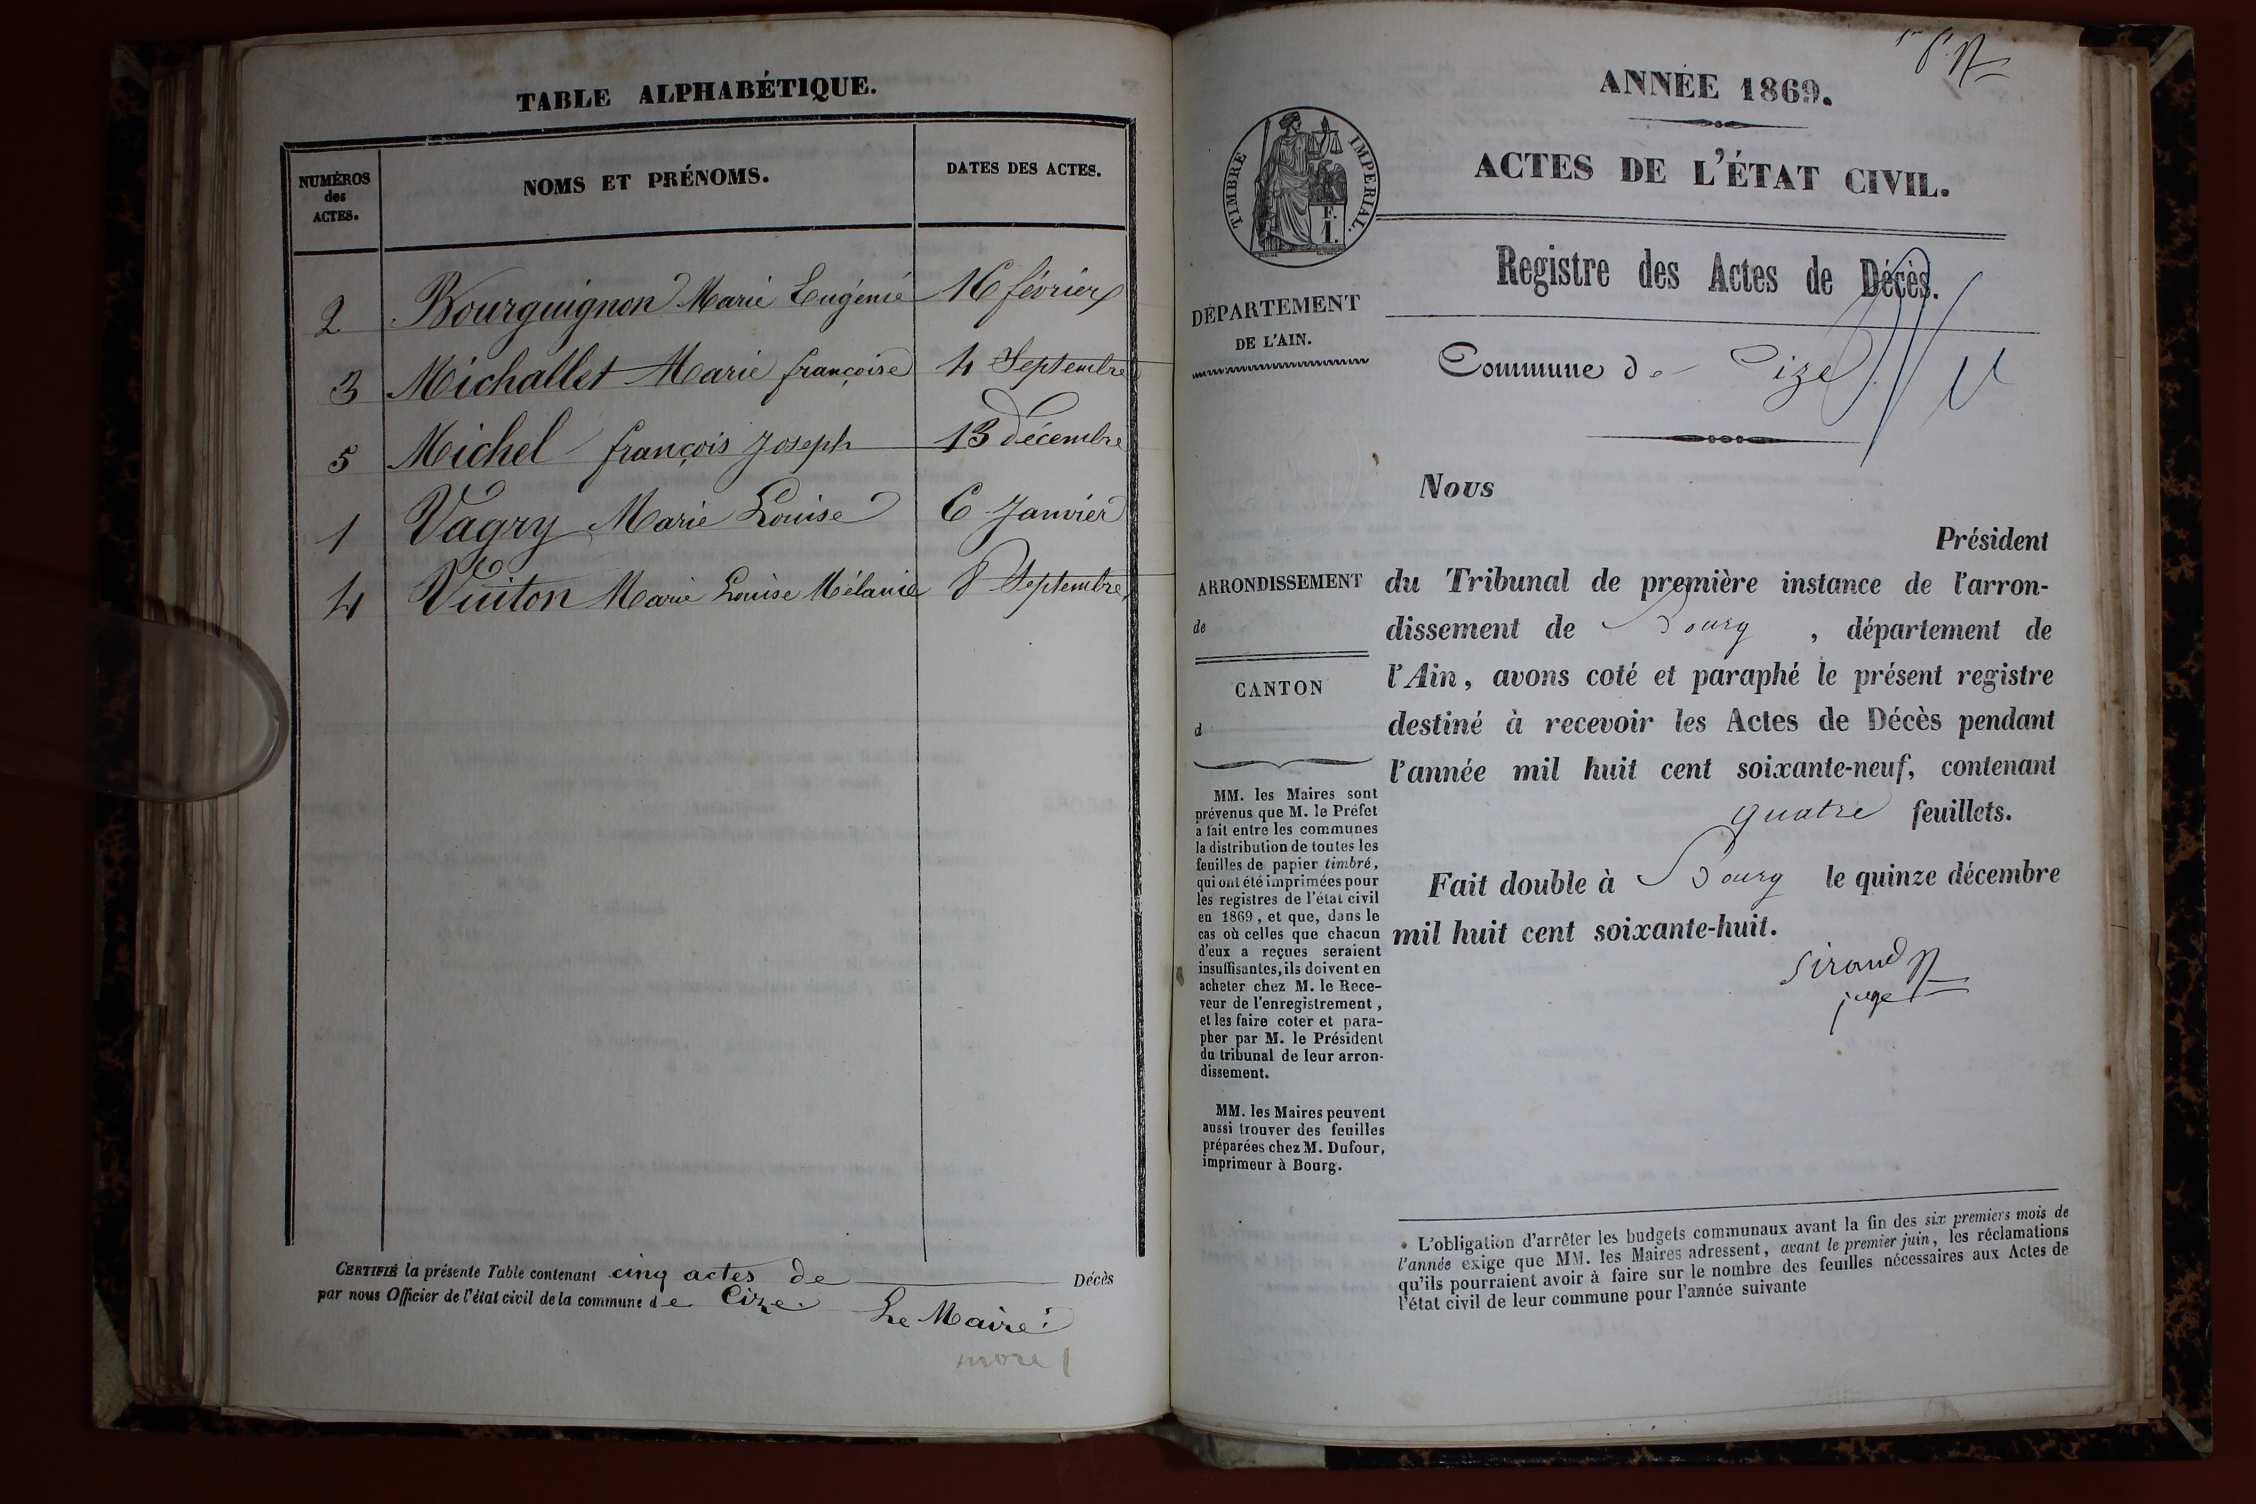 TABLE ALPHABÉTIQUE.
NUMÉROS des ACTES.
NOMS ET PRÉNOMS.
DATES DES ACTES.
2 Bourguignon Marie Eugénie 16 février
3 Michallet Marie françoise 4 Septembre
5 Michel françois Joseph 13 décembre
1 Vagry Marie Louise 6 Janvier
4 Vuiton Marie Louise Mélanie 8 Septembre
CERTIFIÉ la présente Table contenant cinq actes de Décès
par nous Officier de l'état civil de la commune de Cize.
Le Maire:
morel
ANNÉE 1869.
ACTES DE L'ÉTAT CIVIL.
TIMBRE IMPERIAL.
F.
I.
Registre des Actes de Décès.
DÉPARTEMENT
DE L'AIN.
Commune de Cize
Nous
Président
du Tribunal de première instance de l'arron-
dissement de Bourg, département de
l'Ain, avons coté et paraphé le présent registre
destiné à recevoir les Actes de Décès pendant
l'année mil huit cent soixante-neuf, contenant
quatre feuillets.
Fait double à Bourg le quinze décembre
mil huit cent soixante-huit.
Sirand
juge
ARRONDISSEMENT
de
CANTON
d
MM. les Maires sont
prévenus que M. le Préfet
a fait entre les communes
la distribution de toutes les
feuilles de papier timbré,
qui ont été imprimées pour
les registres de l'état civil
en 1869, et que, dans le
cas où celles que chacun
d'eux a reçues seraient
insuffisantes, ils doivent en
acheter chez M. le Rece-
veur de l'enregistrement,
et les faire coter et para-
pher par M. le Président
du tribunal de leur arron-
dissement.
MM. les Maires peuvent
aussi trouver des feuilles
préparées chez M. Dufour,
imprimeur à Bourg.
L'obligation d'arrêter les budgets communaux avant la fin des six premiers mois de
l'année exige que MM. les Maires adressent, avant le premier juin, les réclamations
qu'ils pourraient avoir à faire sur le nombre des feuilles nécessaires aux Actes de
l'état civil de leur commune pour l'année suivante